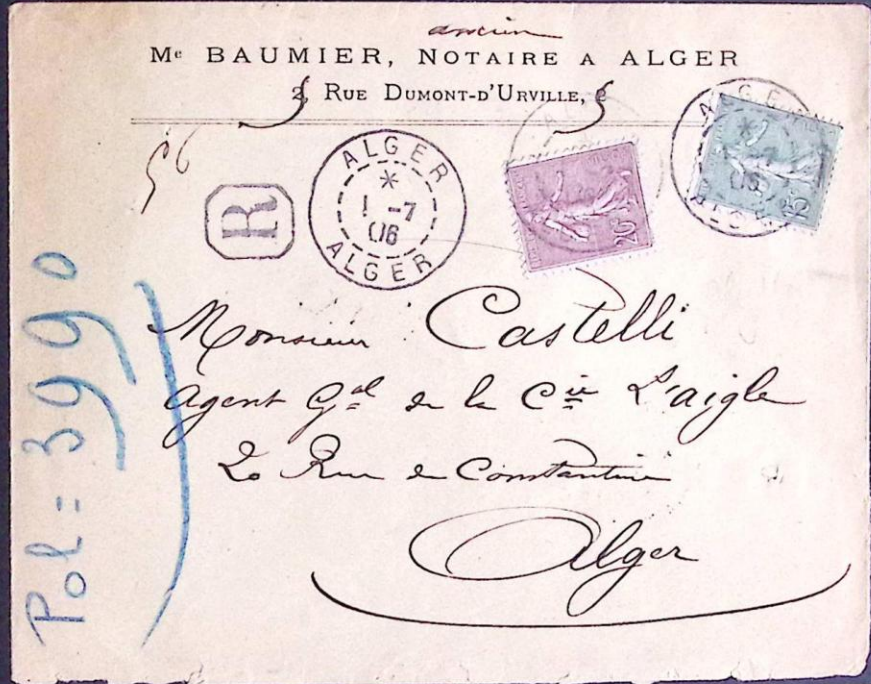 ancien
Me BAUMIER, NOTAIRE A ALGER
5, RUE DUMONT-D'URVILLE, 5
56
R
ALGER
*
1 -7
06
ALGER
20
ALGER
Monsieur Castelli
Agent Gal de la Cie L'aigle
20 Rue de Constantine
Alger
Pol = 3990